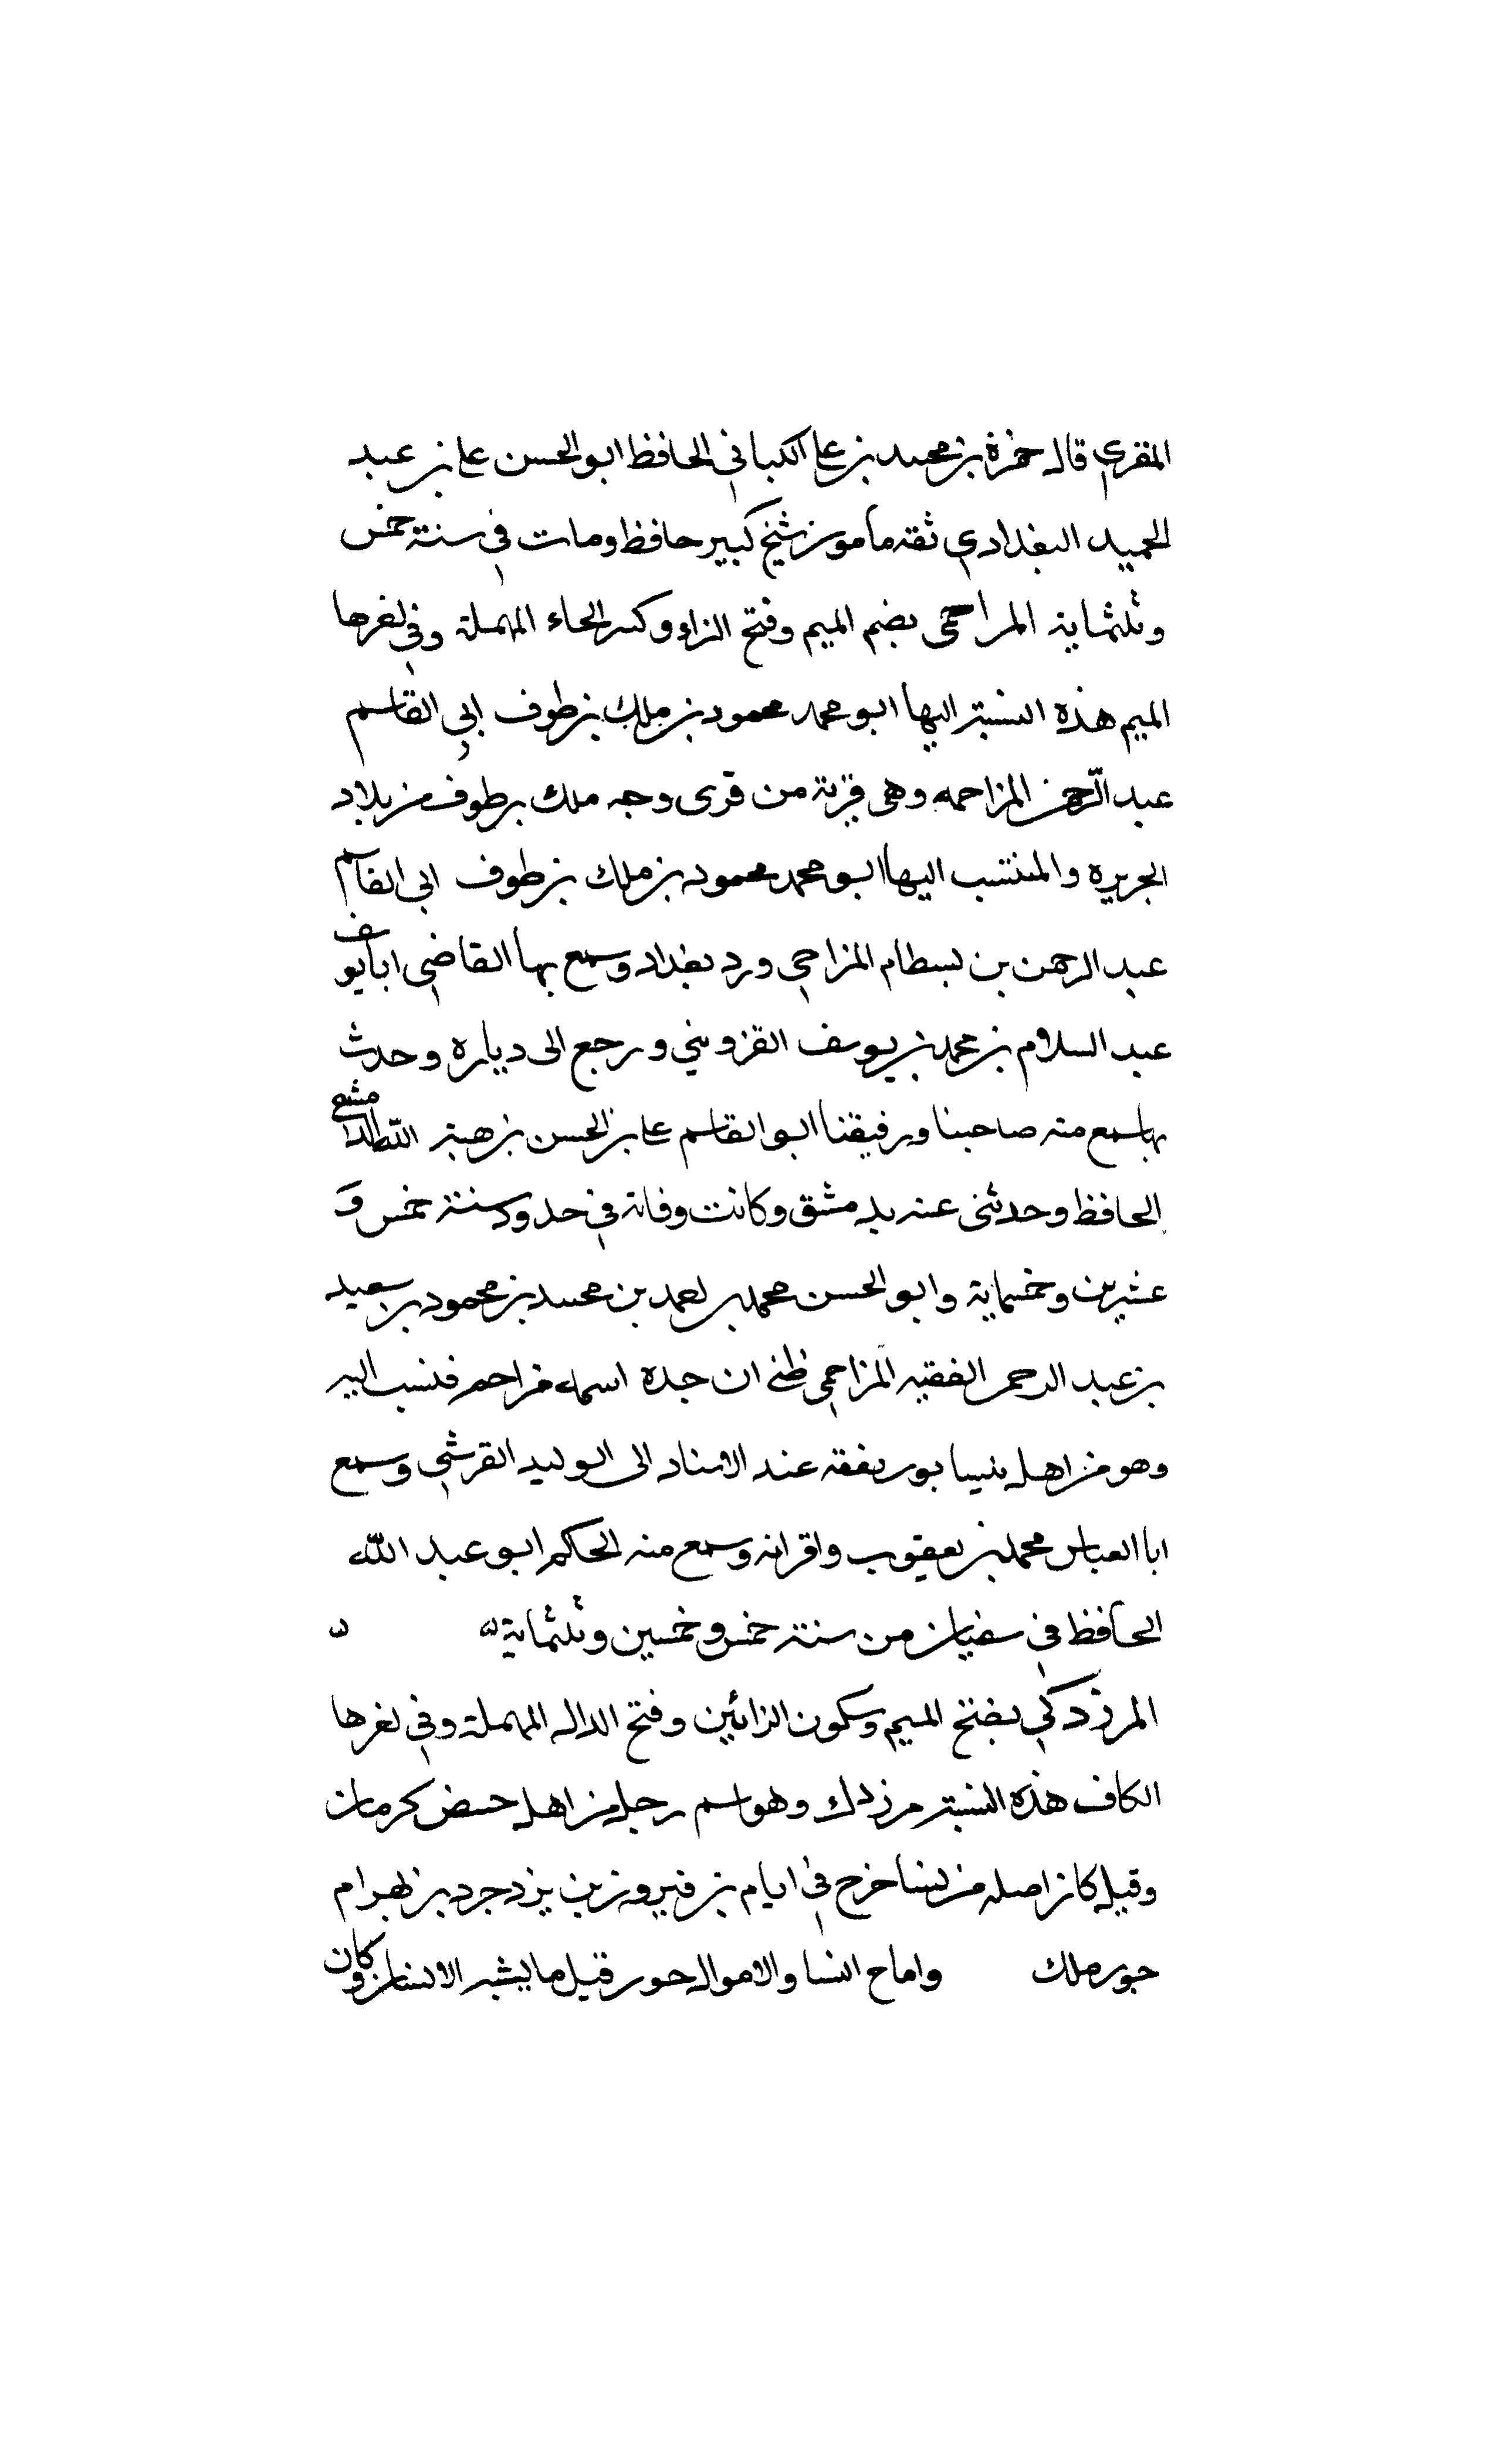 المقري قال حمزة بن محمد بن علي الكباني الحافظ ابو الحسن علي بن عبد
الحميد البغدادي ثقة مامون شيخ كبير حافظ ومات في سنة خمس
وثلثماية المزاحمي بضم الميم وفتح الزاء وكسر الحاء المهملة وفي اخرها
الميم هذه النسبة اليها ابو محمد محمود بن ملك بن طوف ابي القاسم
عبد الرحمن المزاحمه وهي قرية من قرى وجه ملك بن طوف من بلاد
الجزيرة والمنتسب اليها ابو محمد محمود بن ملك بن طوف ابي القاسم
عبد الرحمن بن بسطام المزاحمي ورد بغداد وسمع بها القاضي ابا يوسف
عبد السلام بن محمد بن يوسف القزويني ورجع الى دياره وحدث
بها سمع منه صاحبنا ورفيقنا ابو القاسم علي بن الحسن بن هبة الله الدمشقي
الحافظ وحدثني عنه بدمشق وكانت وفاته في حدود سنة خمس و
عشرين وخمسماية وابو الحسن محمد بن احمد بن محمد بن محمود بن سعيد
بن عبد الرحمن الفقيه المزاحمي ظني ان جده اسمه مزاحم فنسب اليه
وهو من اهل نيسابور تفقه عند الاستاد الى الوليد القرشي وسمع
ابا العباس محمد بن يعقوب واقرانه وسمع منه الحاكم ابو عبد الله
الحافظ في سفيان من سنة خمس وخمسين وثلثماية ه ه
المرزدكي بفتح الميم وسكون الزائين وفتح الدال المهملة وفي اخرها
الكاف هذه النسبة مرزدك وهو اسم رجل من اهل حيض كرمان
وقيل كان اصله من نسا خرج في ايام بن فيروز بن يزدجرد بن بهرام
جور ملك واماح النسا والاموال حور قيل ما يشبه الانسان وكان